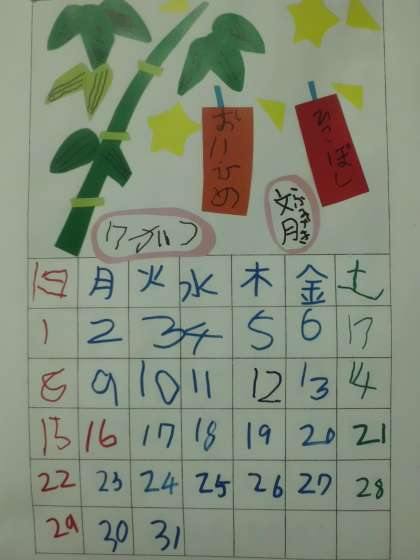 おりひめ
ひこぼし
日 月 火 水 木 金 土
1 2 3 4 5 6 7
8 9 10 11 12 13 14
15 16 17 18 19 20 21
22 23 24 25 26 27 28
29 30 31